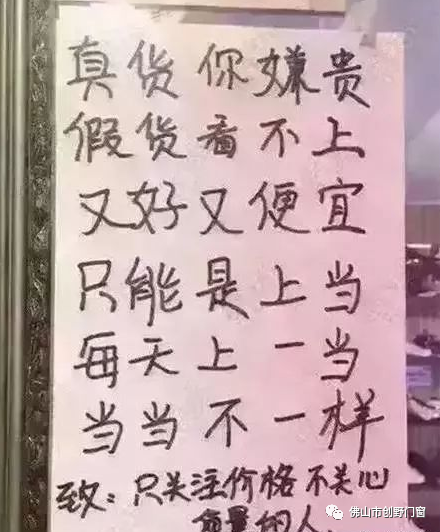 真货你嫌贵
假货看不上
又好又便宜
只能是上当
每天上一当
当当不一样
致：只关注价格不关心
质量的人
佛山市创野门窗